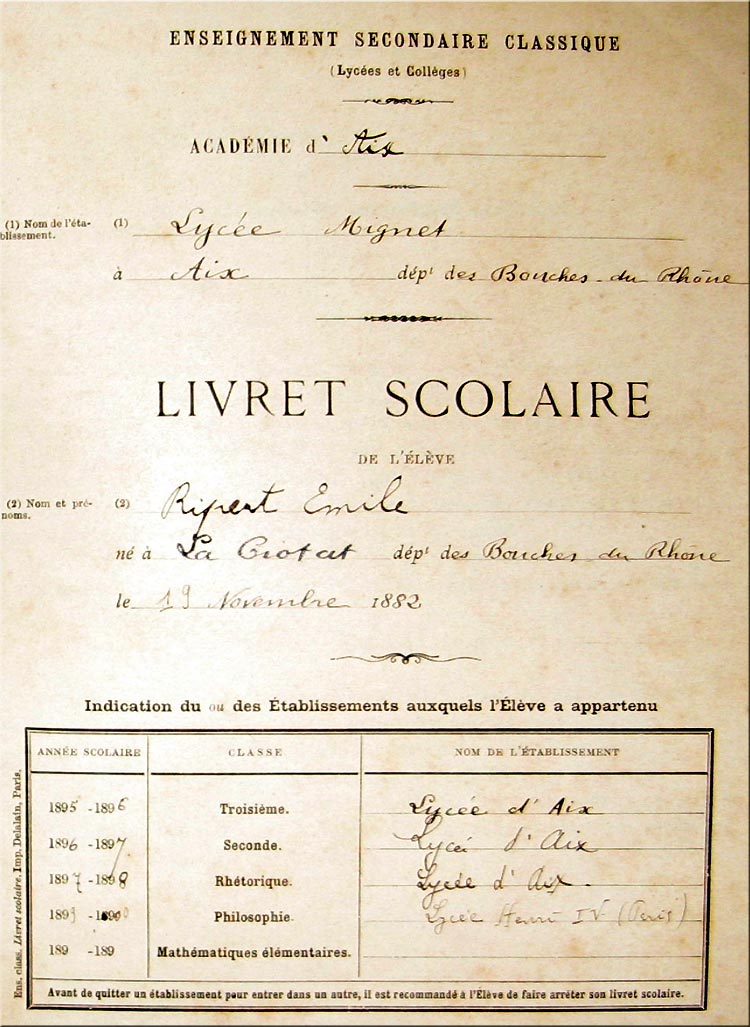 ENSEIGNEMENT SECONDAIRE CLASSIQUE
(Lycées et Collèges)
ACADÉMIE d' Aix
(1) Nom de l'éta-
blissement.
(1) Lycée Mignet
à Aix dépt des Bouches-du Rhône
LIVRET SCOLAIRE
DE L'ÉLÈVE
(2) Nom et pré-
noms.
(2) Ripert Emile
né à La Ciotat dépt des Bouches du Rhône
le 19 Novembre 1882
Indication du ou des Établissements auxquels l'Élève a appartenu
ANNÉE SCOLAIRE CLASSE NOM DE L'ÉTABLISSEMENT
1895 -1896 Troisième. Lycée d'Aix
1896 -1897 Seconde. Lycée d'Aix
1897 -1898 Rhétorique. Lycée d'Aix.
1899 -1900 Philosophie Lycée Henri IV (Paris)
189 -189 Mathématiques élémentaires.
Avant de quitter un établissement pour entrer dans un autre, il est recommandé à l'Élève de faire arrêter son livret scolaire.
Ens. class. Livret scolaire. Imp. Delalain, Paris.